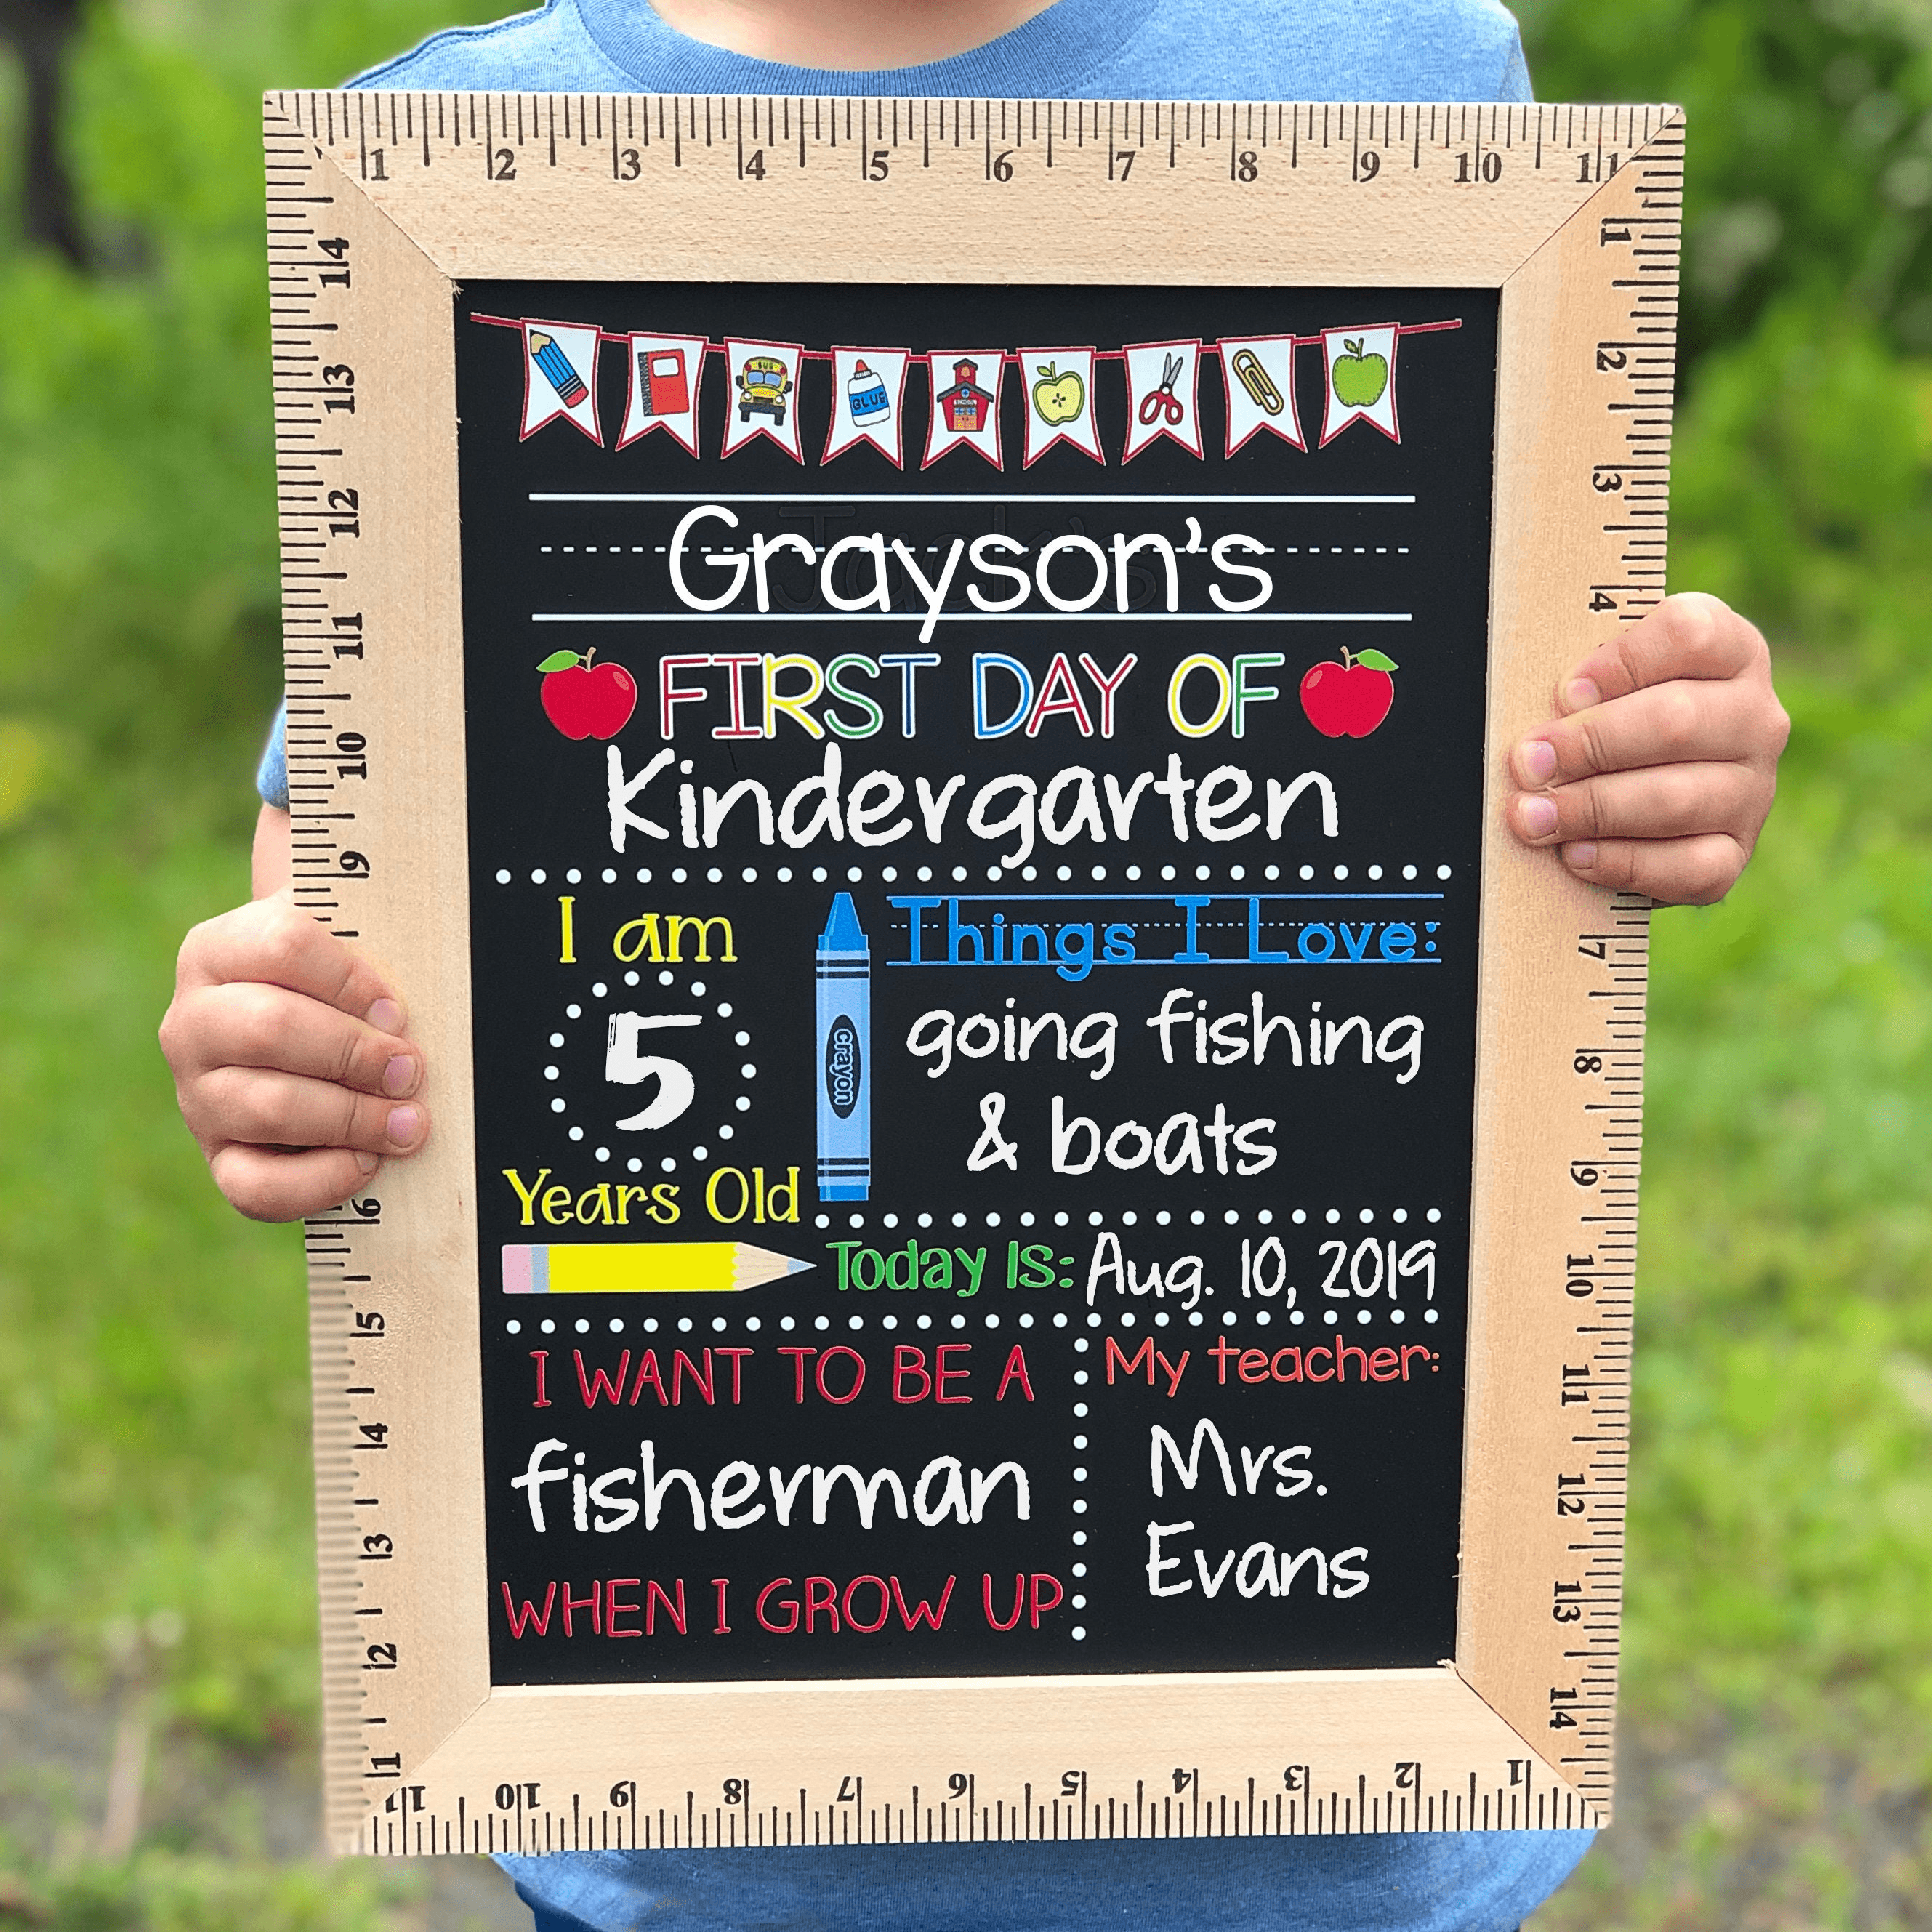 1 2 3 4 5 6 7 8 9 10 11
1 2 3 4 7 8 9 10 11 12 13 14
1 2 3 4 5 6 7 8 9 10 11
1 2 3 4 5 6 9 10 11 12 13 14
BUS
GLUE
SCHOOL
Grayson's
FIRST DAY OF
Kindergarten
I am
5
Years Old
crayon
Things I Love:
going fishing
& boats
Today Is: Aug. 10, 2019
I WANT TO BE A
fisherman
WHEN I GROW UP
My teacher:
Mrs.
Evans